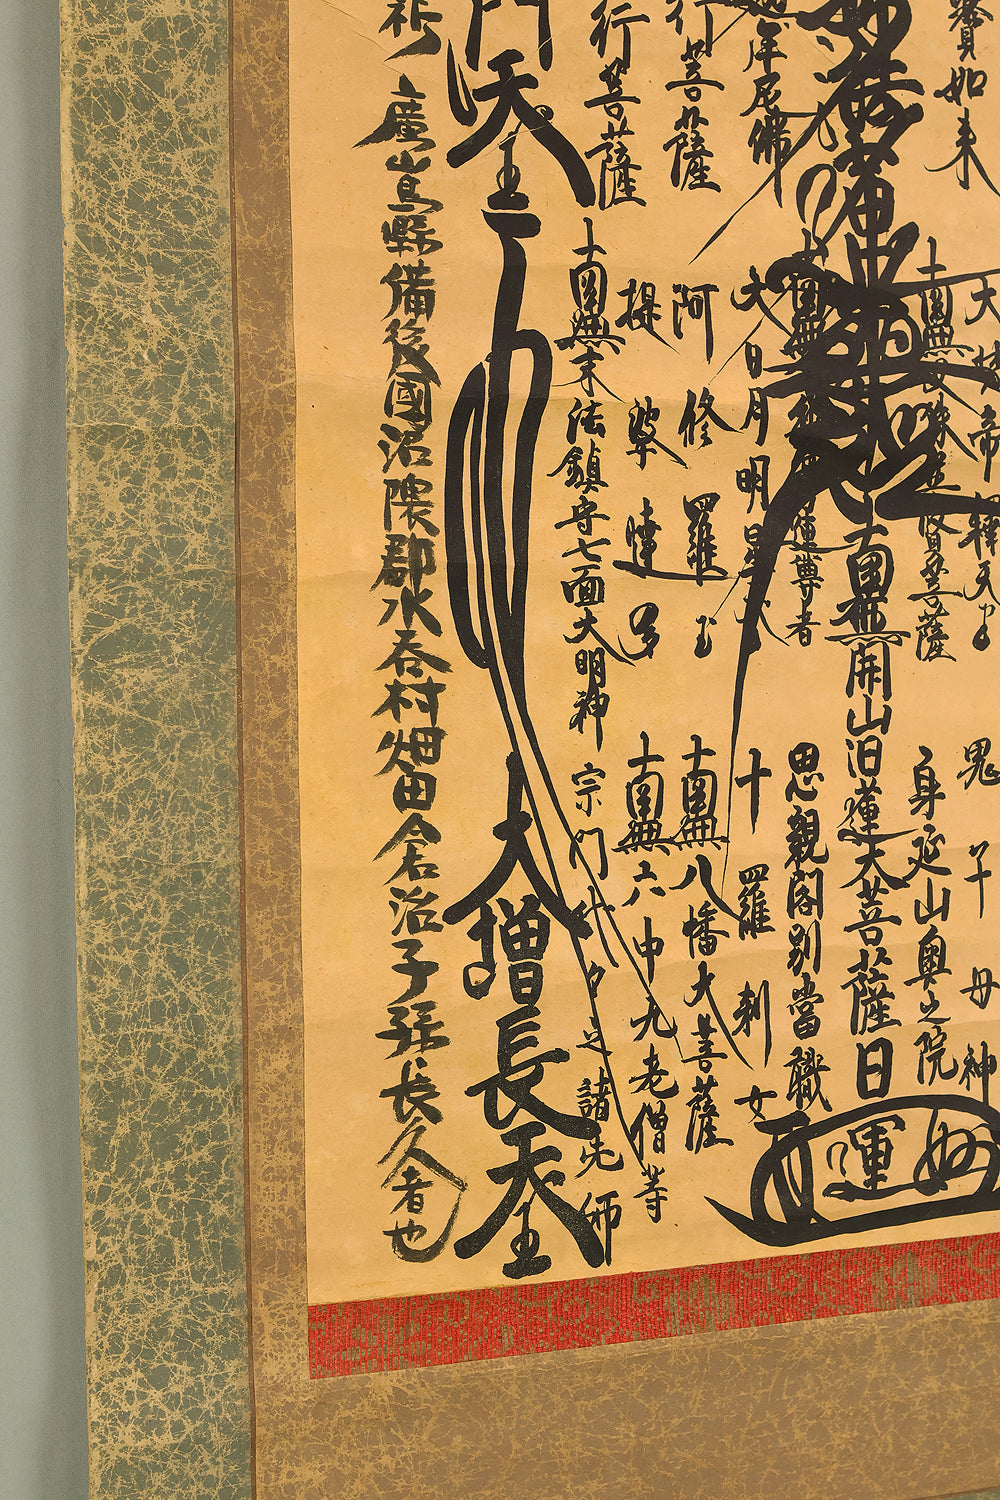 寶如来
帝釋天王
鬼子母神
菩薩
身延山奥之院
南無開山日蓮大菩薩日
運
尊者
思親閣別當職
牟尼佛
大日月明星天
十羅刹女
行菩薩
阿修羅王
南無八幡大菩薩
行菩薩
提婆達多
南無六中九老僧等
南無末法鎮守七面大明神
宗門代々之諸先師
門天王
大増長天王
祈
廣島縣備後國沼隈郡水呑村畑田倉治子孫長久者也